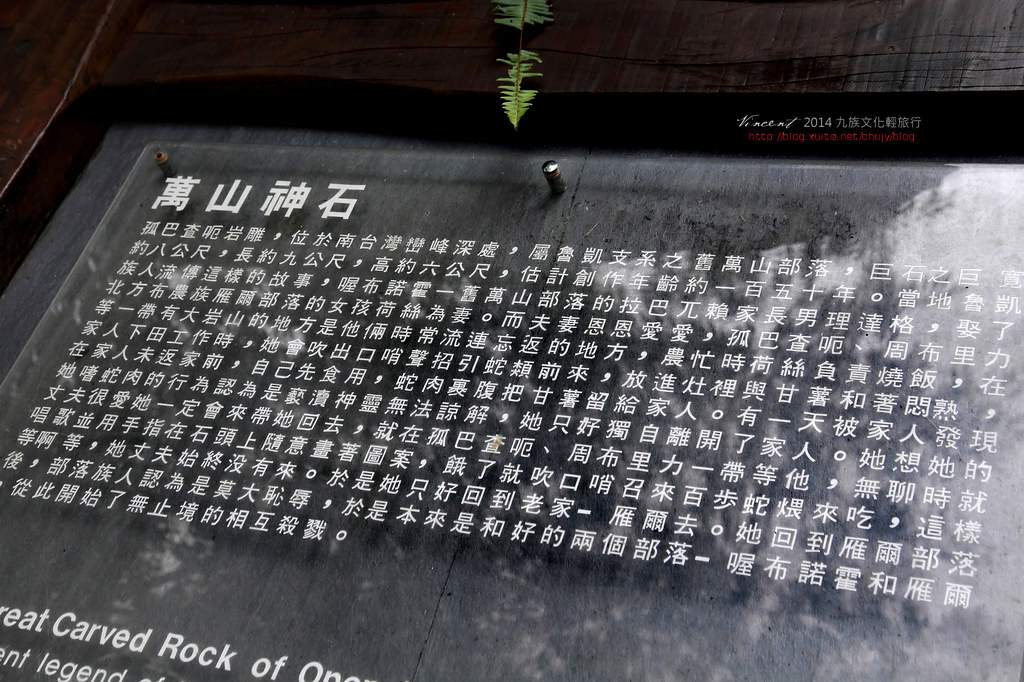 Vincent 2014 九族文化輕旅行
http://blog.xuite.net/bhujy/blog
萬山神石
孤巴查呃岩雕，位於南台灣巒峰深處，屬魯凱支系之舊萬山部落，巨石之巨 寬
約八公尺，長約九公尺，高約六公尺，估計創作年齡約一百五十年。當地魯凱
族人流傳這樣的故事，喔布諾霍一舊萬山部落的拉巴兀賴家長男理達格，娶了
北方布農族雁爾部落的女孩荷絲為妻。而夫妻恩恩愛愛，孤巴查呃、周布里力
等一帶有大岩山的地方是他倆時常流連忘返的地方，農忙時荷絲負責燒飯，在
家人下田工作時，她會吹出口哨聲招引蛇類前來，放進灶裡與甘薯和著悶熟，
在家人未返家前，自己先食用，蛇肉裹腹把甘薯留給家人。有一天被家人發現
她嗜蛇肉的行為認為是褻瀆神靈無法諒解，她只好獨自離開了家人。她想她的
丈夫很愛她一定會來帶她回去，就在孤巴查呃、周布里力一帶等他，無聊時就
唱歌並用手指在石頭上隨意畫著圖案，餓了就吹口哨召來百步蛇煨來吃，這樣
等啊等，她丈夫始終没有來。於是她只好回到老家-雁爾去。她回到雁爾部落
後，部落族人認為是莫大恥辱，於是本來是和好的兩個部落-喔布諾霍和雁爾
從此開始了無止境的相互殺戮。
reat Carved Rock of
ent legend